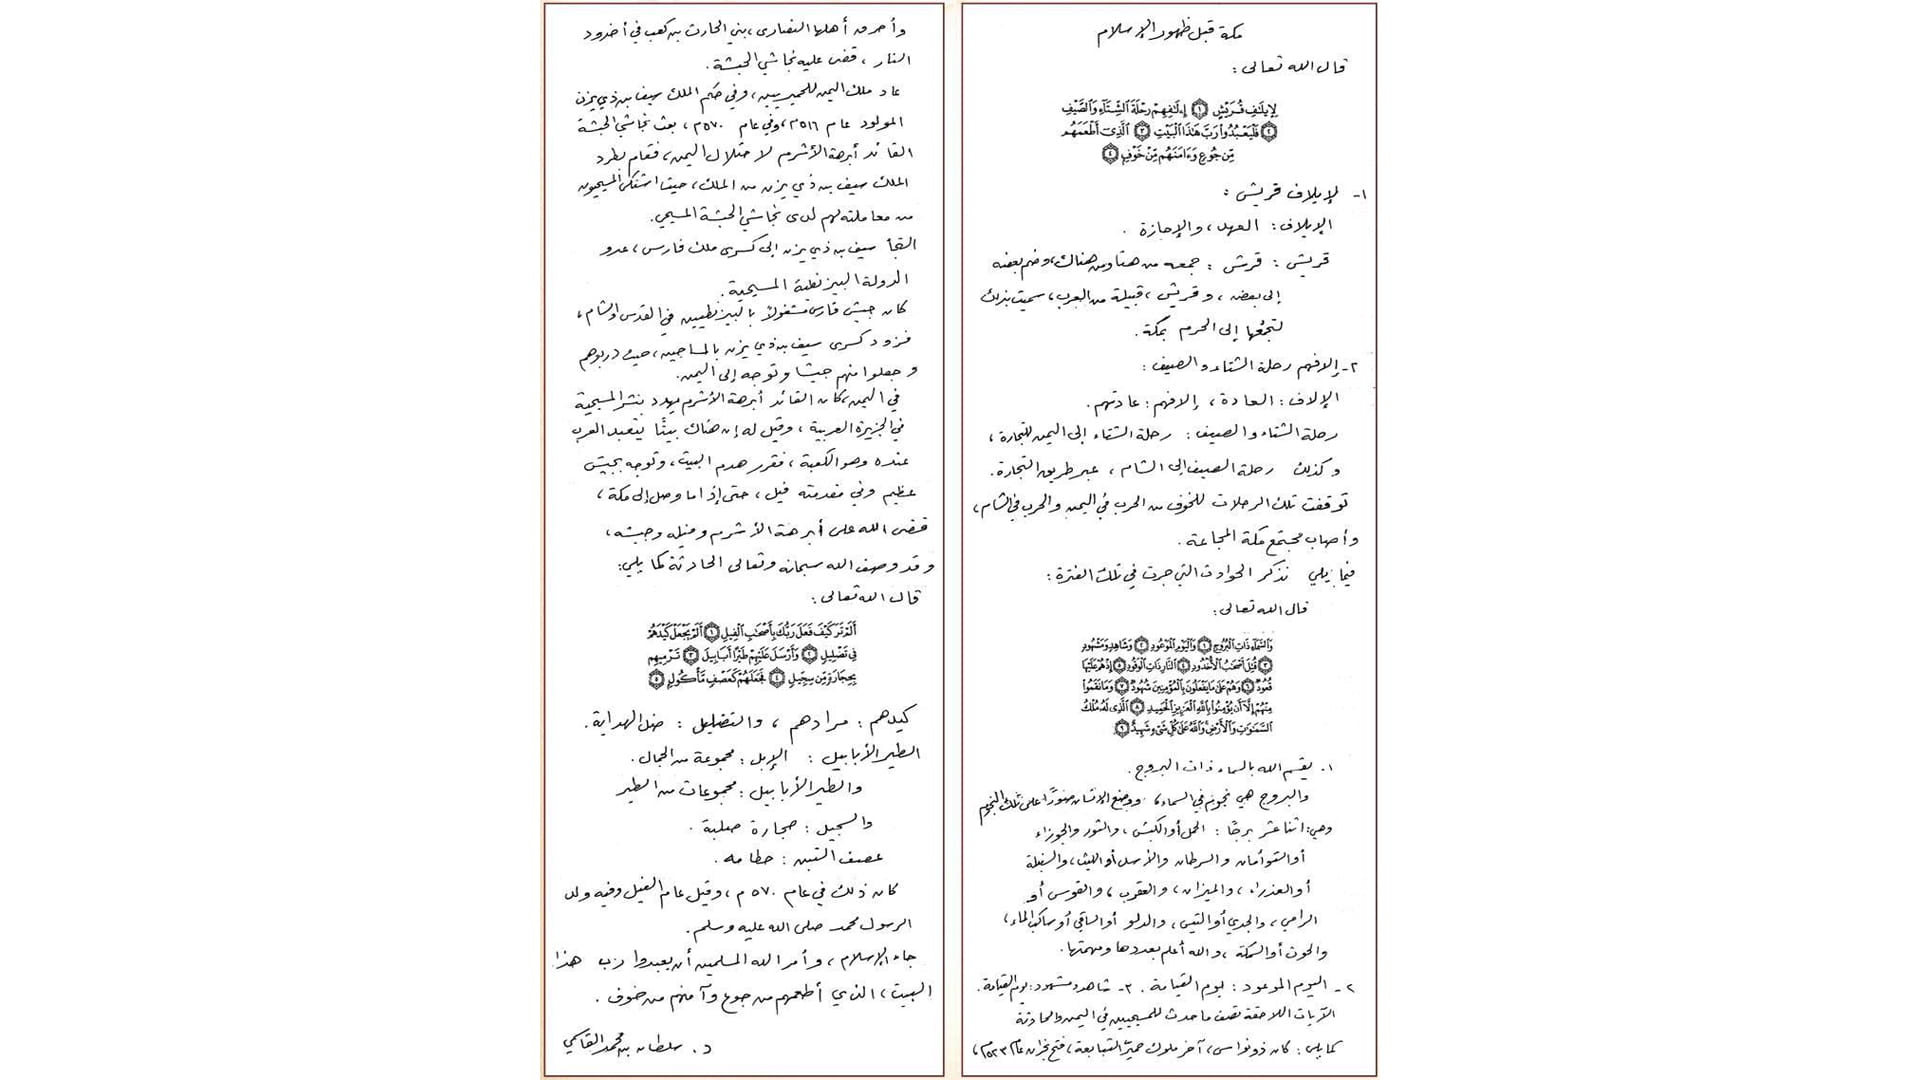 مكة قبل ظهور الإسلام
قال الله تعالى:
لِإِيلَٰفِ قُرَيْشٍ ١ إِۦلَٰفِهِمْ رِحْلَةَ ٱلشِّتَآءِ وَٱلصَّيْفِ
٢ فَلْيَعْبُدُوا۟ رَبَّ هَٰذَا ٱلْبَيْتِ ٣ ٱلَّذِىٓ أَطْعَمَهُم
مِّن جُوعٍ وَءَامَنَهُم مِّنْ خَوْفٍۭ ٤
١- لإيلاف قريش:
الإيلاف: العهد، والإجازة.
قريش: قرش: جمعه من هنا ومن هناك، وضم بعضه
إلى بعض، وقريش، قبيلة من العرب، سميت بذلك
لتجمعها إلى الحرم بمكة.
٢- إلافهم رحلة الشتاء والصيف:
الإلاف: العادة، إلافهم: عادتهم.
رحلة الشتاء والصيف: رحلة الشتاء إلى اليمن للتجارة،
وكذلك رحلة الصيف إلى الشام، عبر طريق التجارة.
توقفت تلك الرحلات للخوف من الحرب في اليمن والحرب في الشام،
وأصاب مجتمع مكة المجاعة.
فيما يلي نذكر الحوادث التي جرت في تلك الفترة:
قال الله تعالى:
وَٱلسَّمَآءِ ذَاتِ ٱلْبُرُوجِ ١ وَٱلْيَوْمِ ٱلْمَوْعُودِ ٢ وَشَاهِدٍ وَمَشْهُودٍ
٣ قُتِلَ أَصْحَٰبُ ٱلْأُخْدُودِ ٤ ٱلنَّارِ ذَاتِ ٱلْوَقُودِ ٥ إِذْ هُمْ عَلَيْهَا
قُعُودٌ ٦ وَهُمْ عَلَىٰ مَا يَفْعَلُونَ بِٱلْمُؤْمِنِينَ شُهُودٌ ٧ وَمَا نَقَمُوا۟
مِنْهُمْ إِلَّآ أَن يُؤْمِنُوا۟ بِٱللَّهِ ٱلْعَزِيزِ ٱلْحَمِيدِ ٨ ٱلَّذِى لَهُۥ مُلْكُ
ٱلسَّمَٰوَٰتِ وَٱلْأَرْضِ وَٱللَّهُ عَلَىٰ كُلِّ شَىْءٍ شَهِيدٌ ٩
١. يقسم الله بالسماء ذات البروج.
والبروج هي نجوم في السماء، ووضع الإنسان صورًا على تلك النجوم
وهي: اثنا عشر برجًا: الحمل أو الكبش، والثور والجوزاء
أو التوأمان والسرطان والأسد أو الليث، والسنبلة
أو العذراء، والميزان، والعقرب، والقوس أو
الرامي، والجدي أو التيس، والدلو أو الساقي أو ساكب الماء،
والحوت أو السمكة، والله أعلم بعددها ومهمتها.
٢- اليوم الموعود: يوم القيامة. ٣- شاهد ومشهود: يوم القيامة.
الآيات اللاحقة تصف ما حدث للمسيحيين في اليمن والحادثة
كما يلي: كان ذو نواس، آخر ملوك حمير التبابعة، فتح نجران عام ٥٢٣م،
وأحرق أهلها النصارى، بني الحارث بن كعب في أخدود
النار، قضى عليه نجاشي الحبشة.
عاد ملك اليمن للحميريين، وفي حكم الملك سيف بن ذي يزن
المولود عام ٥١٦م، وفي عام ٥٧٠م، بعث نجاشي الحبشة
القائد أبرهة الأشرم لاحتلال اليمن، فقام بطرد
الملك سيف بن ذي يزن من الملك، حيث اشتكى المسيحيون
من معاملته لهم لدى نجاشي الحبشة المسيحي.
التجأ سيف بن ذي يزن إلى كسرى ملك فارس، عدو
الدولة البيزنطية المسيحية.
كان جيش فارس مشغولاً بالبيزنطيين في القدس والشام،
فزود كسرى سيف بن ذي يزن بالمساجين، حيث دربوهم
وجعلوا منهم جيشا وتوجه إلى اليمن.
في اليمن، كان القائد أبرهة الأشرم يهدد بنشر المسيحية
في الجزيرة العربية، وقيل له إن هناك بيتًا يتعبد العرب
عنده وهو الكعبة، فقرر هدم البيت، وتوجه بجيش
عظيم وفي مقدمته فيل، حتى إذا ما وصل إلى مكة،
قضى الله على أبرهة الأشرم وفيله وجيشه،
وقد وصف الله سبحانه وتعالى الحادثة كما يلي:
قال الله تعالى:
أَلَمْ تَرَ كَيْفَ فَعَلَ رَبُّكَ بِأَصْحَٰبِ ٱلْفِيلِ ١ أَلَمْ يَجْعَلْ كَيْدَهُمْ
فِى تَضْلِيلٍ ٢ وَأَرْسَلَ عَلَيْهِمْ طَيْرًا أَبَابِيلَ ٣ تَرْمِيهِم
بِحِجَارَةٍ مِّن سِجِّيلٍ ٤ فَجَعَلَهُمْ كَعَصْفٍ مَّأْكُولٍۭ ٥
كيدهم: مرادهم، والتضليل: ضل الهداية.
الطير الأبابيل: الإبل: مجموعة من الجمال.
والطير الأبابيل: مجموعات من الطير
والسجيل: حجارة صلبة.
عصف التبن: حطامه.
كان ذلك في عام ٥٧٠م، وقيل عام الفيل وفيه ولد
الرسول محمد صلى الله عليه وسلم.
جاء الإسلام، وأمر الله المسلمين أن يعبدوا رب هذا
البيت، الذي أطعمهم من جوع وآمنهم من خوف.
د. سلطان بن محمد القاسمي